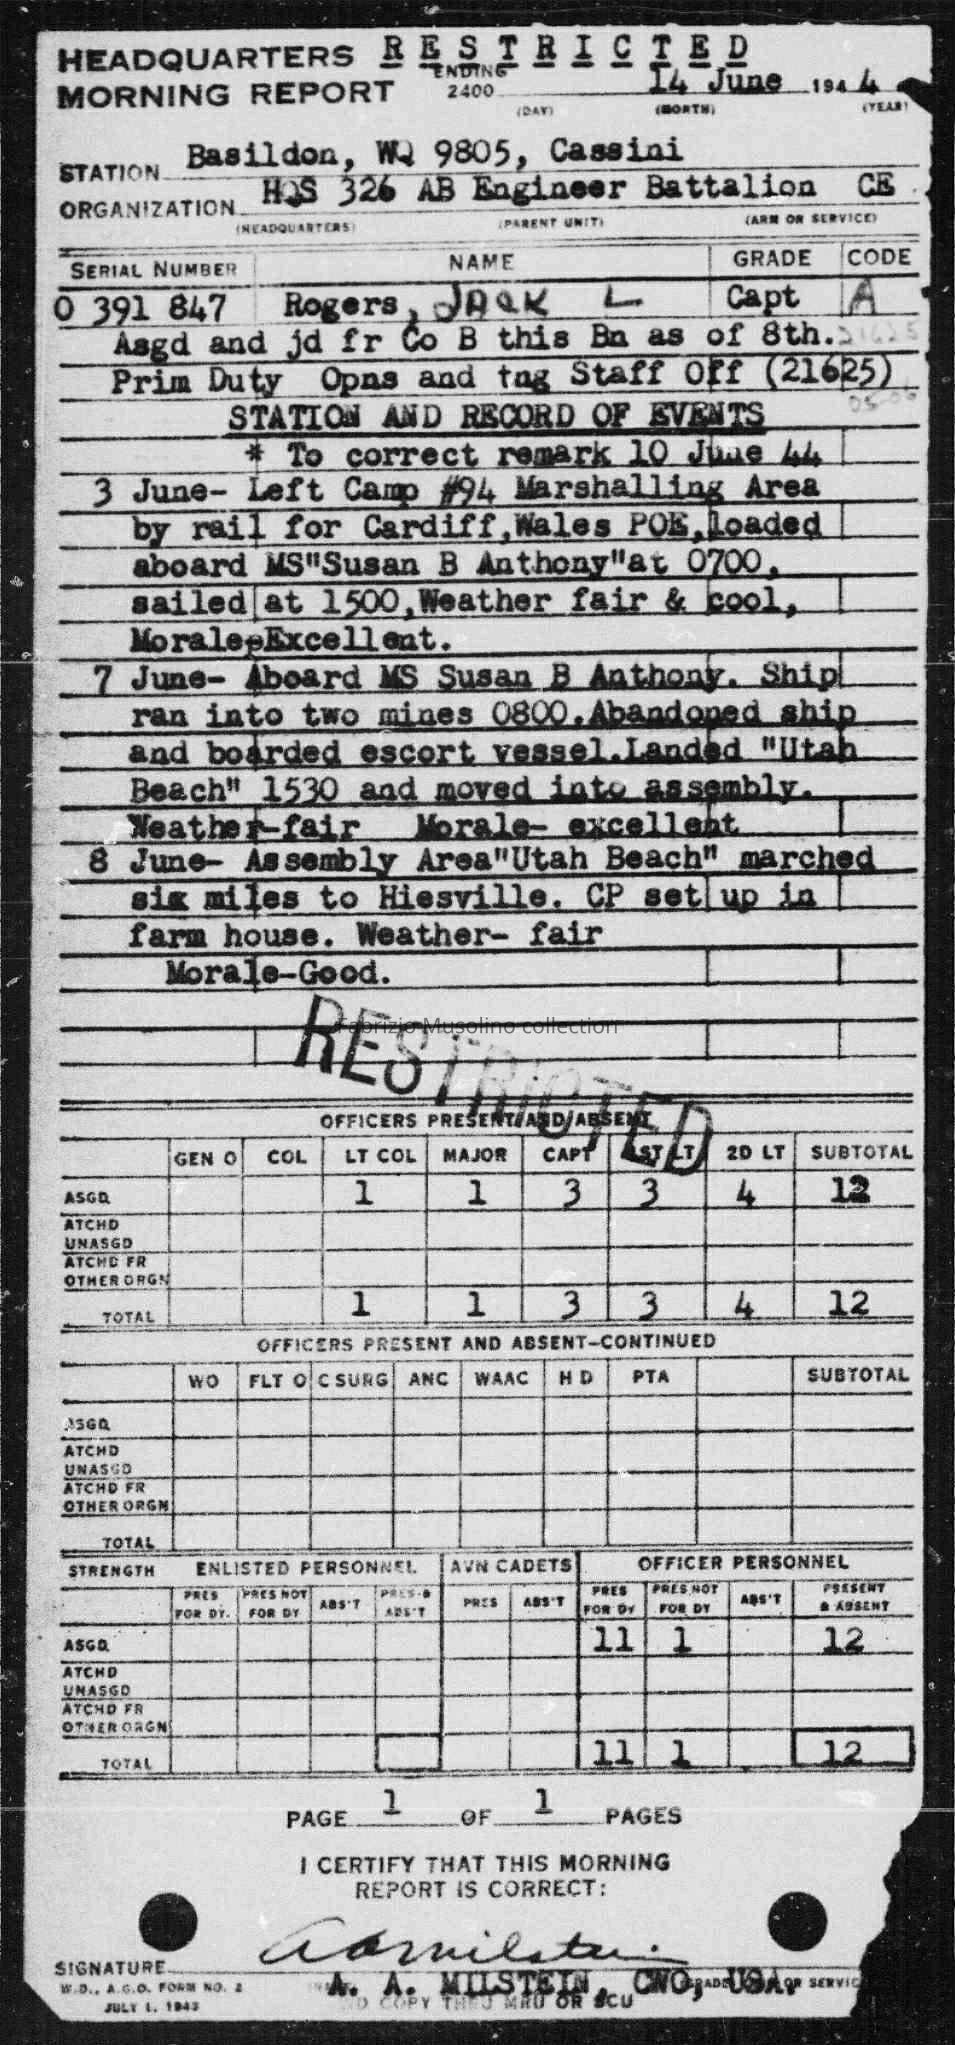 HEADQUARTERS RESTRICTED
MORNING REPORT ENDING 2400 14 June 1944
(DAY) (MONTH) (YEAR)
STATION Basildon, WQ 9805, Cassini
ORGANIZATION HQS 326 AB Engineer Battalion CE
(HEADQUARTERS) (PARENT UNIT) (ARM OR SERVICE)
SERIAL NUMBER NAME GRADE CODE
O 391 847 Rogers, JACK L Capt A
Asgd and jd fr Co B this Bn as of 8th. 21625
Prim Duty Opns and tng Staff Off (21625)
05-06
STATION AND RECORD OF EVENTS
* To correct remark 10 June 44
3 June- Left Camp #94 Marshalling Area
by rail for Cardiff,Wales POE,loaded
aboard MS"Susan B Anthony"at 0700,
sailed at 1500,Weather fair & cool,
Morale-Excellent.
7 June- Aboard MS Susan B Anthony. Ship
ran into two mines 0800.Abandoned ship
and boarded escort vessel.Landed "Utah
Beach" 1530 and moved into assembly.
Weather-fair Morale- excellent
8 June- Assembly Area"Utah Beach" marched
six miles to Hiesville. CP set up in
farm house. Weather- fair
Morale-Good.
Fabrizio Musolino collection
RESTRICTED
OFFICERS PRESENT AND ABSENT
GEN O COL LT COL MAJOR CAPT 1ST LT 2D LT SUBTOTAL
ASGD 1 1 3 3 4 12
ATCHD
UNASGD
ATCHD FR
OTHER ORGN
TOTAL 1 1 3 3 4 12
OFFICERS PRESENT AND ABSENT-CONTINUED
WO FLT O C SURG ANC WAAC H D PTA SUBTOTAL
ASGD
ATCHD
UNASGD
ATCHD FR
OTHER ORGN
TOTAL
STRENGTH ENLISTED PERSONNEL AVN CADETS OFFICER PERSONNEL
PRES FOR DY. PRES NOT FOR DY ABS'T PRES & ABS'T PRES ABS'T PRES FOR DY PRES NOT FOR DY ABS'T PRESENT & ABSENT
ASGD 11 1 12
ATCHD
UNASGD
ATCHD FR
OTHER ORGN
TOTAL 11 1 12
PAGE 1 OF 1 PAGES
I CERTIFY THAT THIS MORNING
REPORT IS CORRECT:
A A Milstein
SIGNATURE
A. A. MILSTEIN, CWO, USA.
W.D., A.G.O. FORM NO. 2
JULY 1, 1943
COPY THRU MRU OR SCU